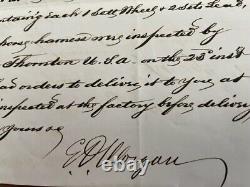 taining each 1 Sett Wheels & 2 Setts Lead
harness were inspected by
Thornton U.S.A. on the 23d inst
had orders to deliver it to you as
inspected at the factory before delivery
Yours &c
E D Morgan